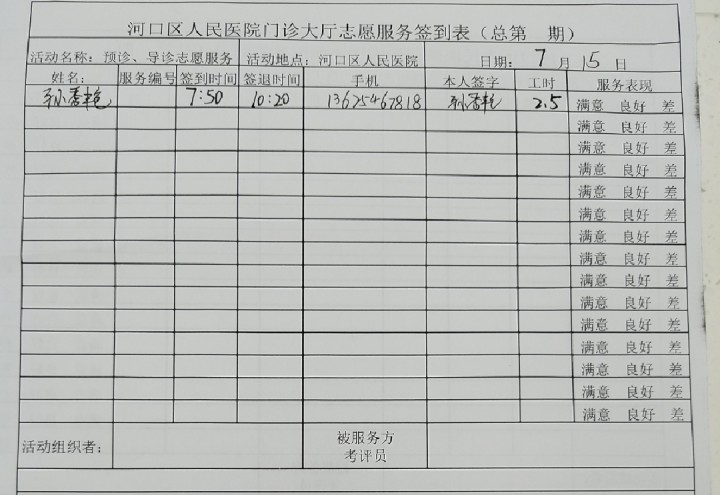 河口区人民医院门诊大厅志愿服务签到表（总第 期）
活动名称：预诊、导诊志愿服务 活动地点：河口区人民医院 日期：7月15日
姓名： 服务编号 签到时间 签退时间 手机 本人签字 工时 服务表现
孙秀艳 7:50 10:20 13625467818 孙秀艳 2.5 满意 良好 差
满意 良好 差
满意 良好 差
满意 良好 差
满意 良好 差
满意 良好 差
满意 良好 差
满意 良好 差
满意 良好 差
满意 良好 差
满意 良好 差
满意 良好 差
满意 良好 差
满意 良好 差
满意 良好 差
活动组织者： 被服务方
考评员